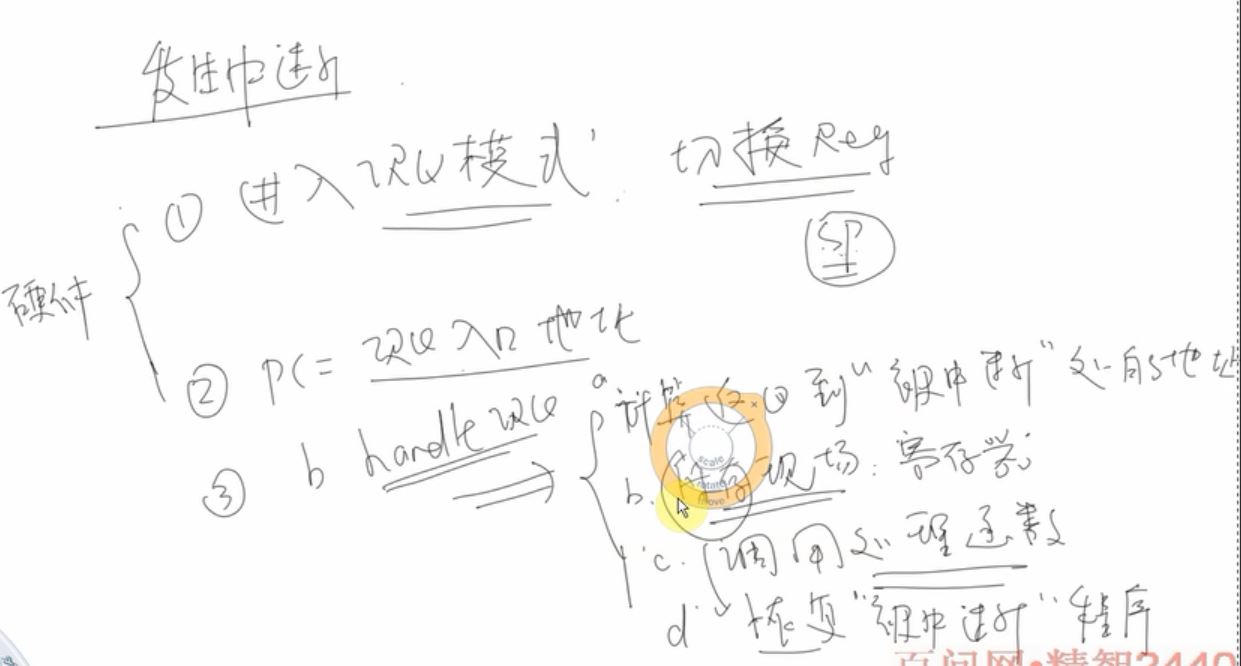 发生中断
① 进入IRQ模式 切换Reg
SP
硬件
② PC= IRQ入口地址
③ b handle IRQ
a 计算 返回到"被中断"处的地址
b. 保存现场：寄存器
c. 调用处理函数
d 恢复"被中断"程序
scale
rotate
move
百问网·精智2440